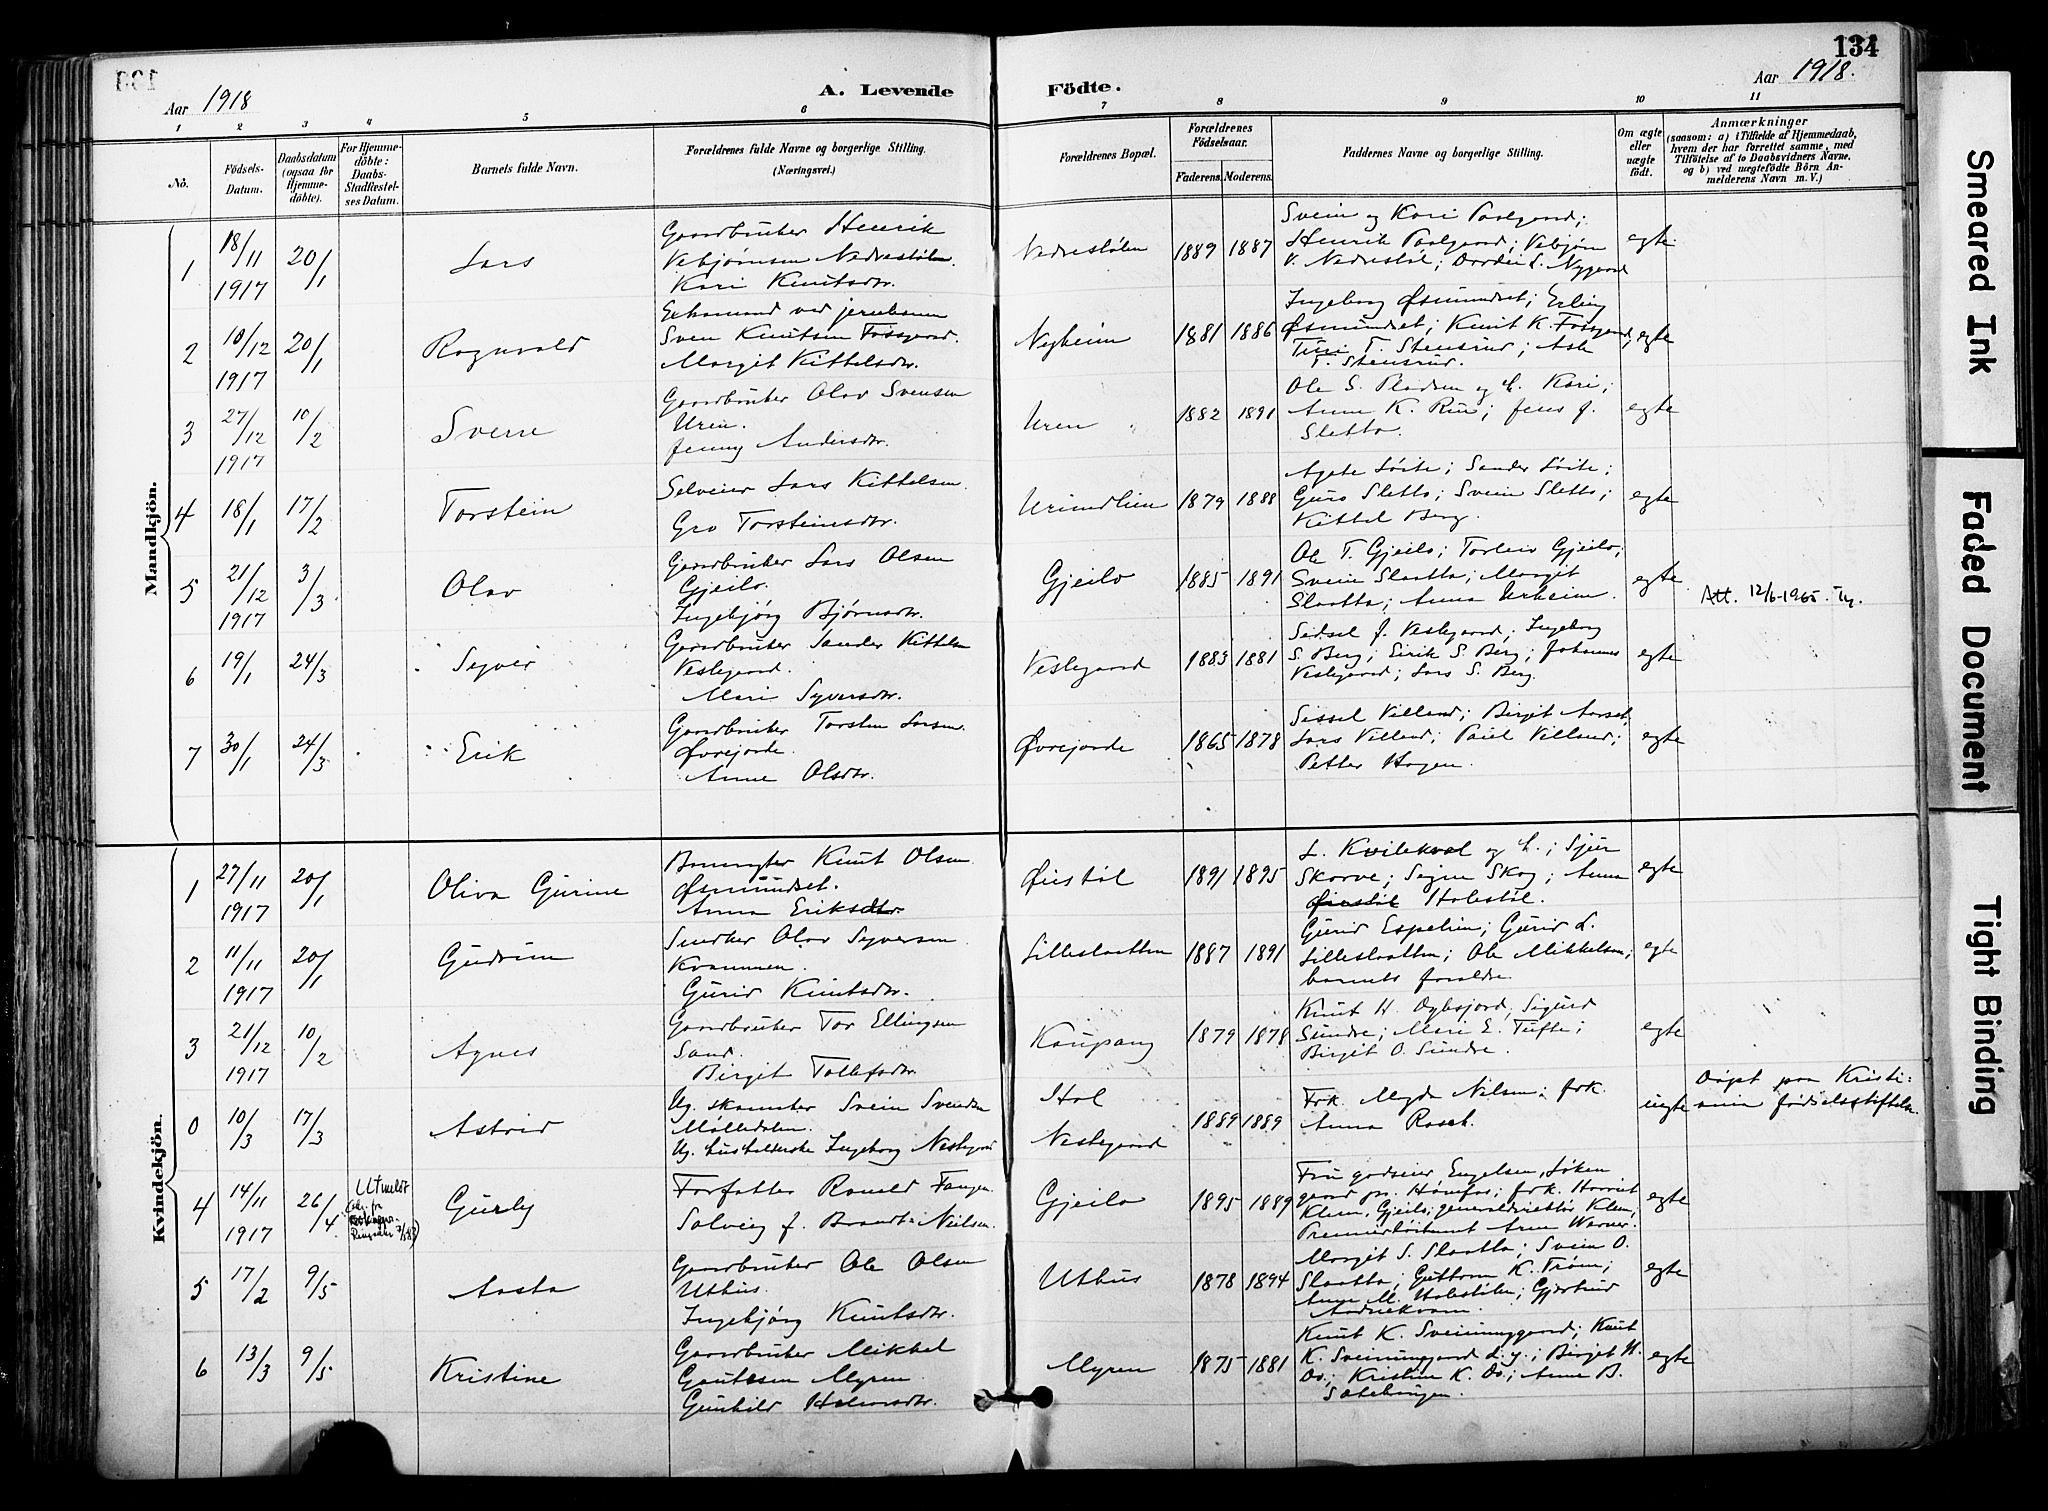 134
Aar 1918
A. Levende
Födte.
Aar 1918.
1 2 3 4 5 6 7 8 9 10 11
No.
Födsels-
Datum.
Daabsdatum
(ogsaa for
Hjemme-
döbte).
For Hjemme-
döbte:
Daabs-
Stadfæstel-
ses Datum.
Barnets fulde Navn.
Forældrenes fulde Navne og borgerlige Stilling.
(Næringsvei.)
Forældrenes Bopæl.
Forældrenes
Födselsaar.
Faderens. Moderens.
Faddernes Navne og borgerlige Stilling.
Om ægte
eller
uægte
födt.
Anmærkninger
(saasom: a) i Tilfælde af Hjemmedaab,
hvem der har forrettet samme, med
Tilföielse af to Daabsvidners Navne,
og b) ved uægtefödte Börn An-
melderens Navn m. V.)
Mandkjön.
1 18/11 1917 20/1 Lars
Gaardbruker Henrik
Vebjørnsen Nedrestølen.
Kari Knutsdtr.
Nedrestølen 1889 1887
Svein og Kari Paalgaard;
Henrik Paalgaard; Vebjørn
V. Nedrestøl; Dordei L. Nygaard
egte
2 10/12 1917 20/1 Ragnvald
Sven Knutsen Fossgard.
Margit Kittelsdtr.
Nyheim 1881 1886
Ingeborg Øsmundset; Erling
Øsmundset; Knut K. Fossgard;
Turi T. Stensrud; Asle
T. Stensrud.
egte
3 27/12 1917 10/2 Sverre
Gaardbruker Olav Svensen
Uren.
Jenny Andersdtr.
Uren 1882 1891
Ole S. Pladsen og h. Kari;
Anne K. Rue; Jens J.
Sletto.
egte
4 18/1 17/2 Torstein
Selveier Lars Kittelsen
Gro Torsteinsdtr.
Urundlien 1879 1888
Agate Löite; Sander Löite;
Guro Sletto; Svein Sletto;
Kittel Berg.
egte
5 21/12 1917 3/3 Olav
Gaardbruker Lars Olsen
Gjeilo.
Ingebjörg Bjørnsdtr.
Gjeilo 1885 1891
Ole T. Gjeilo; Torleiv Gjeilo;
Svein Slaatta; Margit
Slaatta; Anna Urheim.
egte
Att. 12/6-1965. Ty.
6 19/1 24/3 Syver
Gaardbruker Sander Kittelsen
Veslegaard.
Mari Syversdtr.
Veslegaard 1883 1881
Sidsel J. Veslegaard; Ingeborg
S. Berg; Eirik S. Berg; Johannes
Veslegaard; Lars S. Berg.
egte
7 30/1 24/3 Erik
Gaardbruker Torsten Larsen
Øvrejorde.
Anne Olsdtr.
Øvrejorde 1865 1878
Sissel Villand; Birgit Aarset;
Lars Villand; Paul Villand;
Petter Hagen.
egte
Kvindekjön.
1 27/11 1917 20/1 Oliva Gurine
Knut Olsen
Øsmundset.
Anna Eriksdtr.
Øistøl 1891 1895
L. Kvilekval og h.; Sjur
Skorve; Signe Skog; Anna
Holestøl.
egte
2 11/11 1917 20/1 Gudrun
Snedker Olav Syversen
Kvammen.
Gurid Knutsdtr.
Lilleslaatten 1887 1891
Gurid Espelien; Gurid L.
Lilleslaatten; Ole Mikkelsen;
barnets foreldre.
egte
3 21/12 1917 10/2 Agnes
Gaardbruker Tor Ellingsen
Sand.
Birgit Tollefsdtr.
Kaupang 1879 1878
Knut H. Øybsjord, Sigurd
Sundre; Mari E. Tufte;
Birgit O. Sundre.
egte
0 10/3 17/3 Astrid
Ug. skomaker Svein Svendsen
Mølledalen.
Ug. husholderske Ingeborg Neslegaard
Hol
Neslegaard 1889 1889
Frk. Magda Nilsen; frk.
Anna Rasch.
uegte
Døpt paa Kristi-
ania fødselsstiftelse
4 14/11 1917 26/4
Utmeldt
Gurly
Forfatter Ronald Fangen.
Solveig J. Brandt Nielsen.
Gjeilo 1895 1889
Fru godseier Engelsen, Løken
gaard pr. Hønefos; frk. Harriet
Klem, Gjeilo; generaldirektör Klem,
Premierløitenant Arne Werner.
egte
5 17/2 9/5 Aasta
Gaardbruker Ole Olsen
Uthus.
Ingebjørg Knutsdtr.
Uthus 1878 1894
Margit S. Slaatta; Svein O.
Slaatta; Guttorm K. Trøim;
Anne M. Holestølen; Gjertrud
egte
6 13/3 9/5 Kristine
Gaardbruker Mikkel
Gautesen Myren
Gunhild Halvorsdtr.
Myren 1875 1881
Knut K. Sveinunggaard; Knut
K. Sveinunggaard d.y.; Birgit H.
Do.; Kristine K. Do.; Anne B.
egte
Smeared Ink
Faded Document
Tight Binding